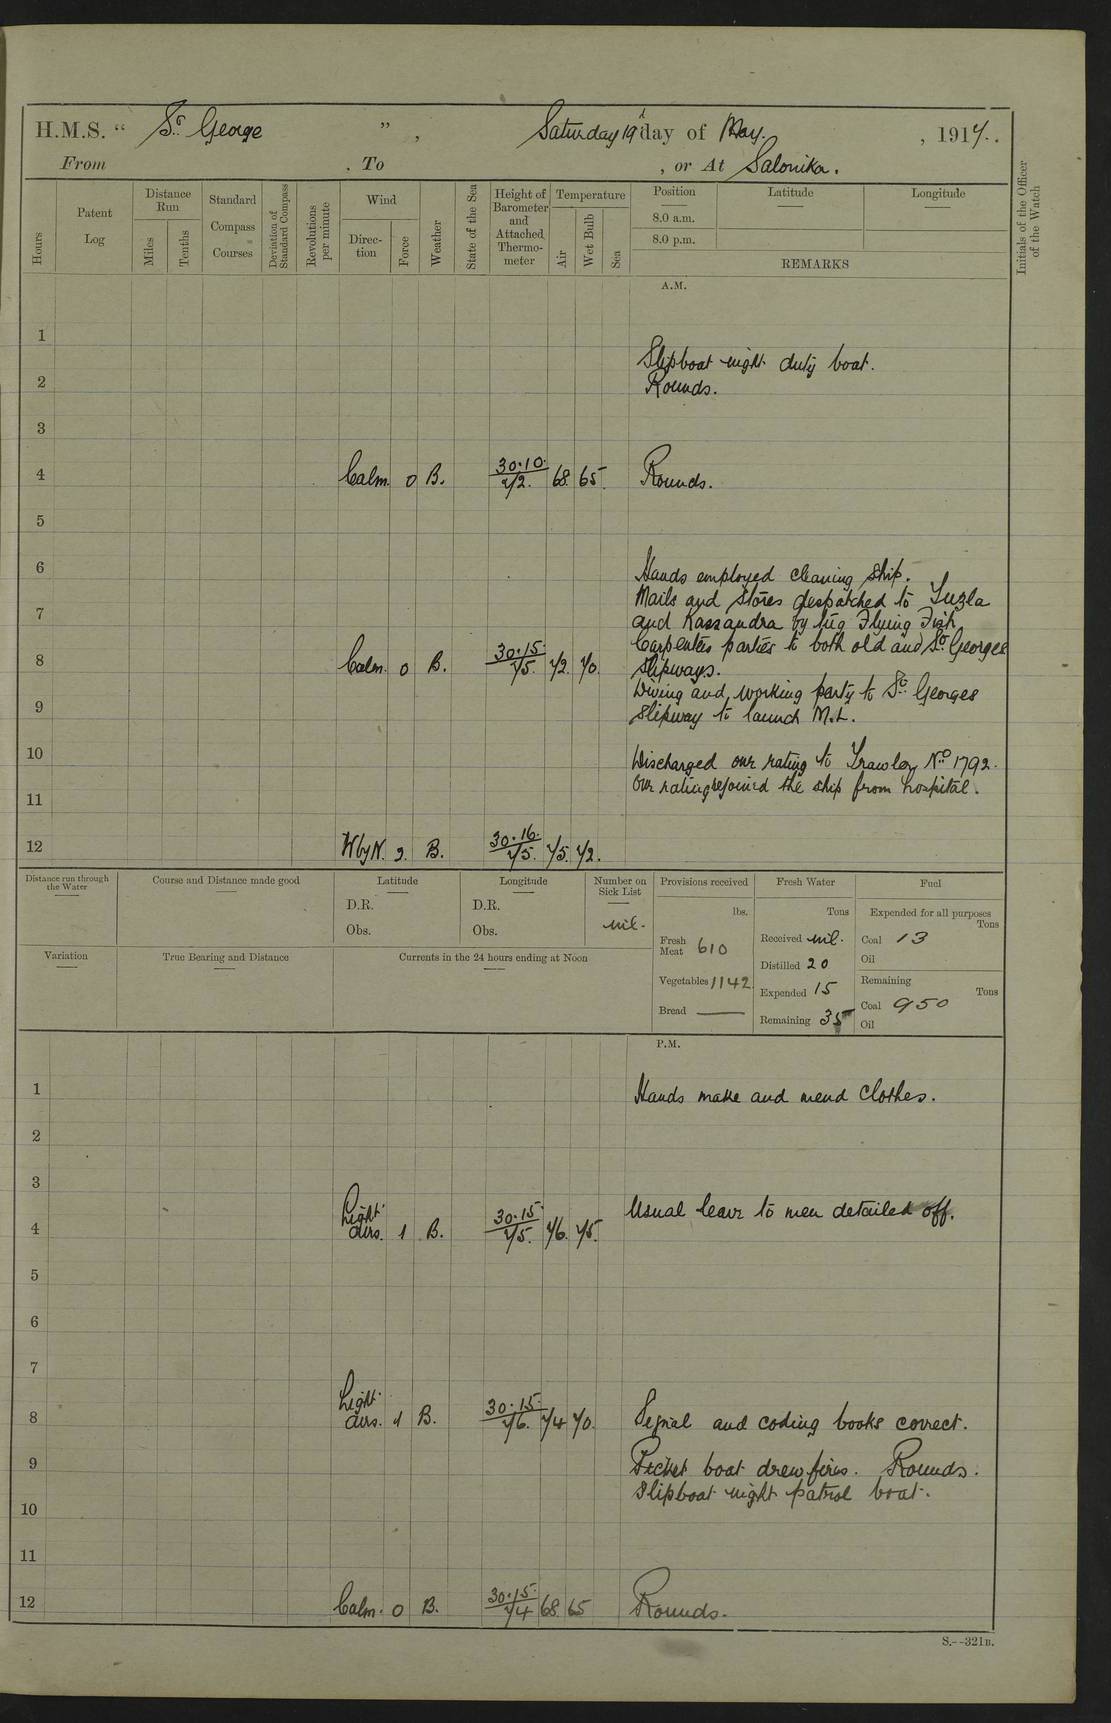 H.M.S. “ St George ” , Saturday 19th day of May. , 1917.
From . To , or At Salonika.
Hours
Patent Log
Distance Run
Miles
Tenths
Standard Compass Courses
Deviation of Standard Compass
Revolutions per minute
Wind
Direction
Force
Weather
State of the Sea
Height of Barometer and Attached Thermometer
Temperature
Air
Wet Bulb
Sea
Position
8.0 a.m.
8.0 p.m.
Latitude
Longitude
REMARKS
Initials of the Officer of the Watch
A.M.
1
Slipboat night duty boat.
2 Rounds.
3
4 Calm. 0 B. 30.10. 72. 68. 65. Rounds.
5
6 Hands employed cleaning ship.
Mails and stores despatched to Tuzla
7 and Kassandra by tug Flying Fish.
Carpenters parties to both old and St. Georges
8 Calm. 0 B. 30.15. 75. 72. 70. Slipways.
Diving and working party to St. Georges
9 Slipway to launch M.L.
10 Discharged one rating to Trawler No 1792.
One rating rejoined the ship from hospital.
11
12 W by N. 2. B. 30.16. 75. 75. 72.
Distance run through the Water
Course and Distance made good
Latitude
D.R.
Obs.
Longitude
D.R.
Obs.
Number on Sick List
nil.
Provisions received
lbs.
Fresh Meat 610
Vegetables 1142
Bread —
Fresh Water
Tons
Received nil.
Distilled 20
Expended 15
Remaining 35
Fuel
Expended for all purposes
Tons
Coal 13
Oil
Remaining
Tons
Coal 950
Oil
Variation
True Bearing and Distance
Currents in the 24 hours ending at Noon
P.M.
1 Hands make and mend clothes.
2
3
Light airs. 1 B. 30.15. 75. 76. 75. Usual leave to men detailed off.
4
5
6
7
8 Light airs. 1 B. 30.15. 76. 74 70. Signal and coding books correct.
9 Picket boat drew fires. Rounds.
Slipboat night patrol boat.
10
11
12 Calm. 0 B. 30.15. 74 68. 65 Rounds.
S.--321B.